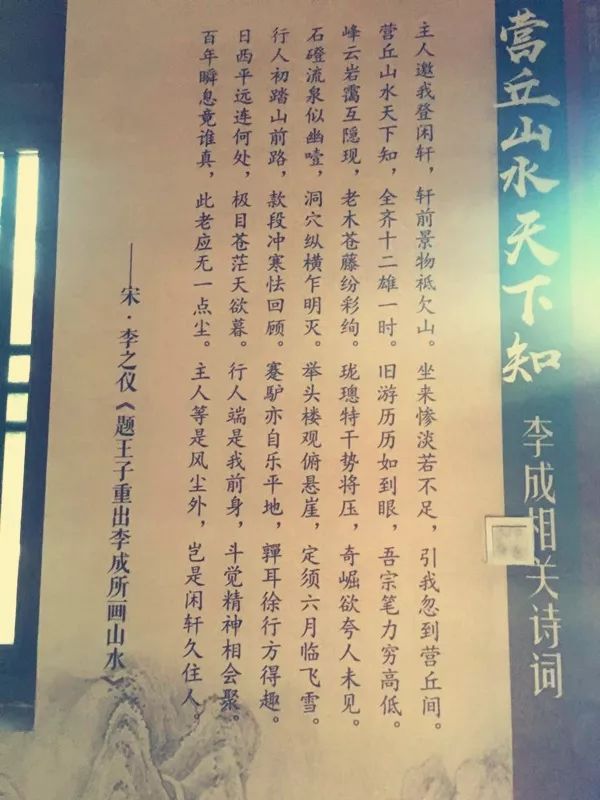 营丘山水天下知
李成相关诗词
主人邀我登闲轩，轩前景物祗欠山。坐来惨淡若不足，引我忽到营丘间。
营丘山水天下知，全齐十二雄一时。旧游历历如到眼，吾宗笔力穷高低。
峰云岩霭互隐现，老木苍藤纷彩绚。珑璁特干势将压，奇崛欲夸人未见。
石磴流泉似幽噎，洞穴纵横乍明灭。举头楼观俯悬崖，定须六月临飞雪。
行人初踏山前路，款段冲寒怯回顾。蹇驴亦自乐平地，亸耳徐行方得趣。
日西平远连何处，极目苍茫天欲暮。行人端是我前身，斗觉精神相会聚。
百年瞬息竟谁真，此老应无一点尘。主人等是风尘外，岂是闲轩久住人。
——宋·李之仪《题王子重出李成所画山水》